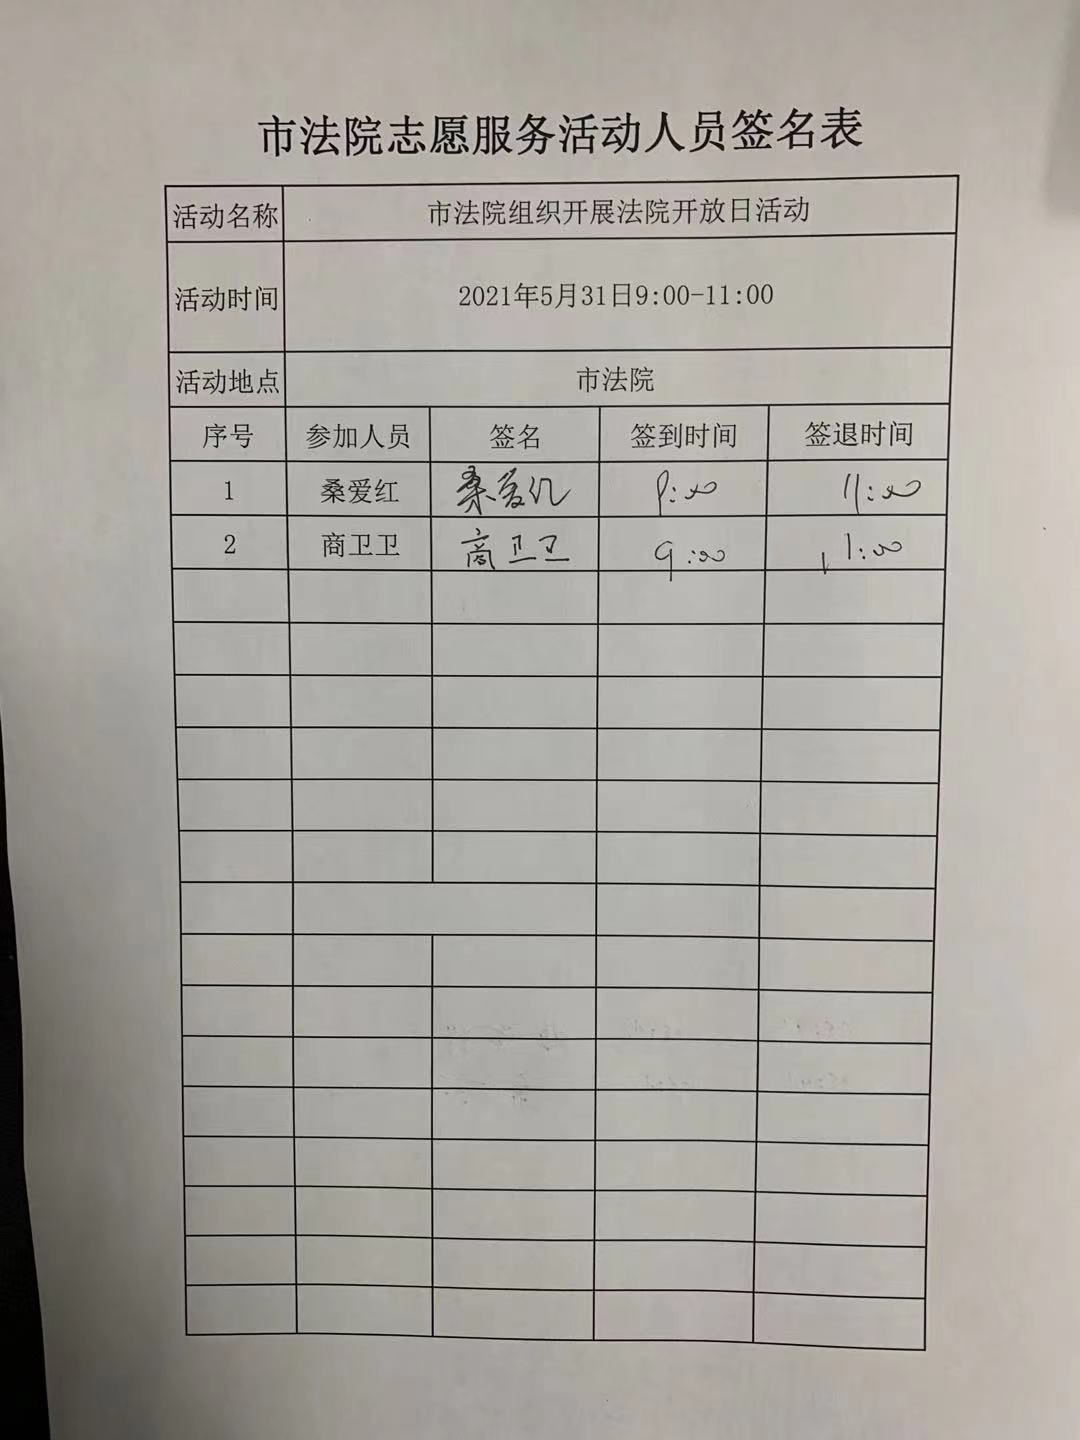 市法院志愿服务活动人员签名表
活动名称 市法院组织开展法院开放日活动
活动时间 2021年5月31日9:00-11:00
活动地点 市法院
序号 参加人员 签名 签到时间 签退时间
1 桑爱红 桑爱红 9:00 11:00
2 商卫卫 商卫卫 9:00 11:00